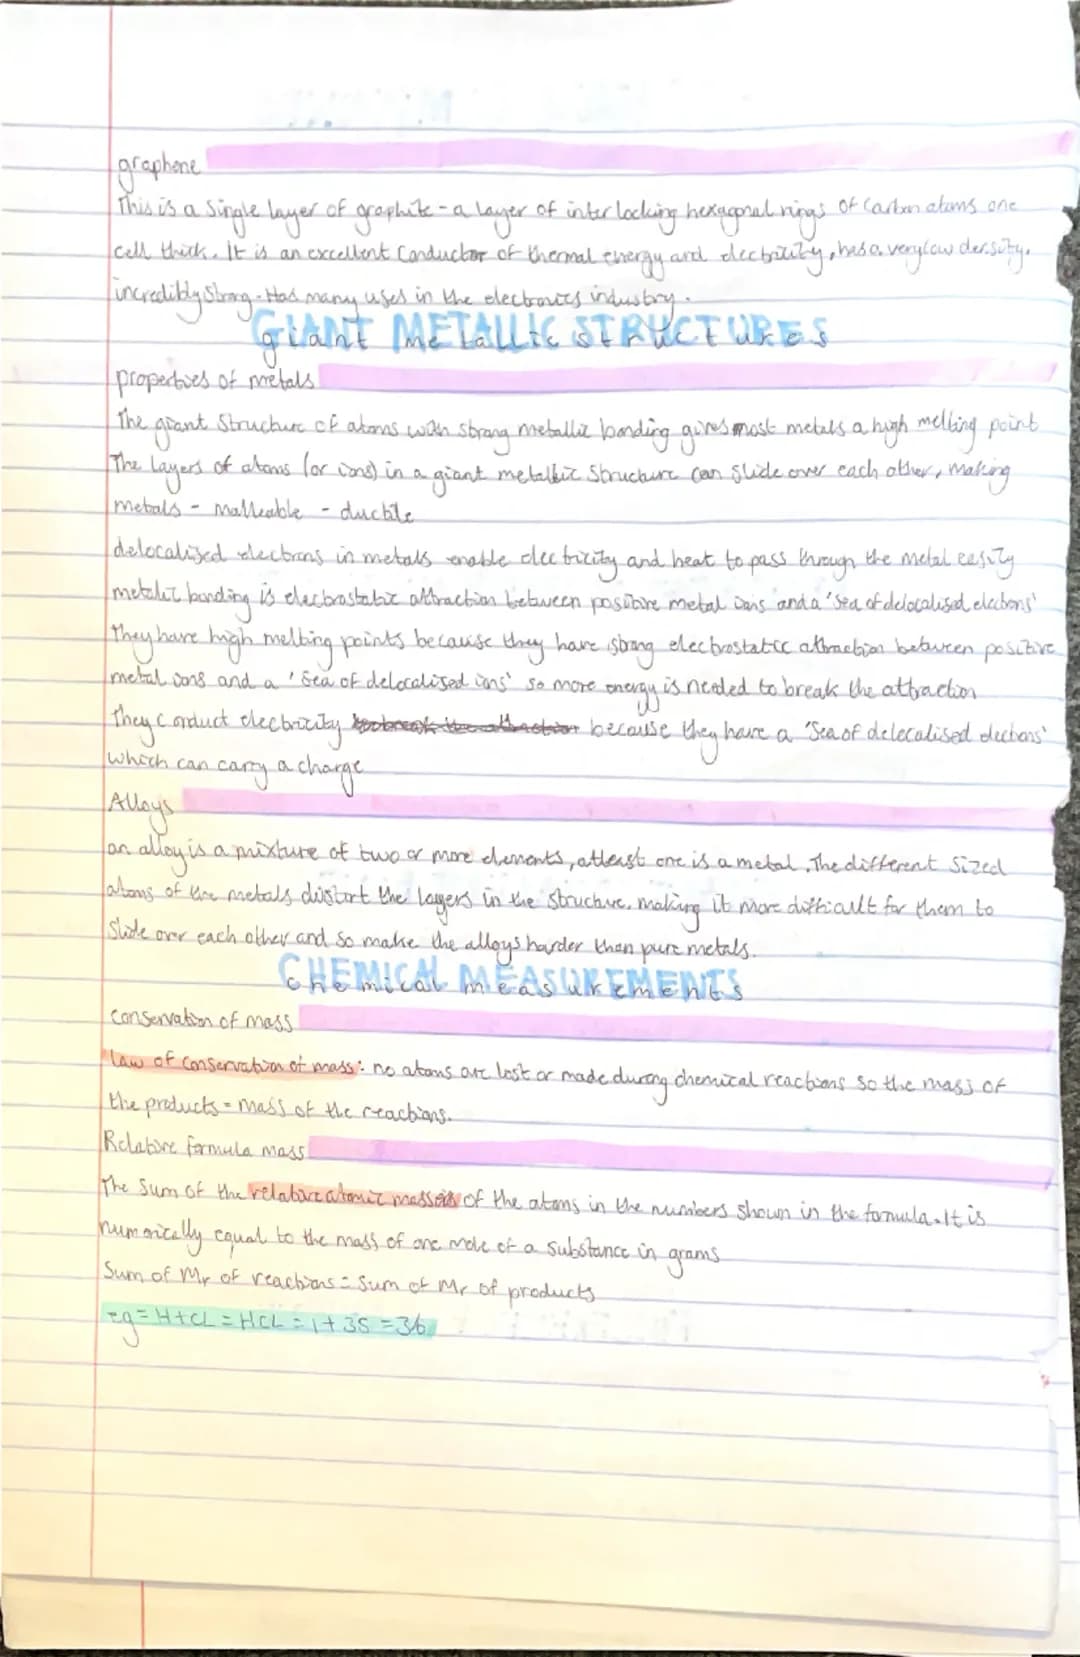 graphene
This is a single layer of graphite - a layer of inter locking hexagonal rings of carbon atoms one
cell thick. It is an excellent conductor of thermal energy and electricity, has a very low density,
incredibly strong. Has many uses in the electronics industry.
GIANT METALLIC STRUCTURES
properties of metals
The giant structure of atoms with strong metallic bonding gives most metals a high melting point
The layers of atoms (or ions) in a giant metallic structure can slide over each other, making
metals - malleable - ductile
delocalised electrons in metals enable electricity and heat to pass through the metal easily
metallic bonding is electrostatic attraction between positive metal ions and a 'sea of delocalised electrons'
They have high melting points because they have strong electrostatic attraction between positive
metal ions and a 'sea of delocalised ions' so more energy is needed to break the attraction
They conduct electricity to break the attraction because they have a 'sea of delocalised electrons'
which can carry a charge
Alloys
an alloy is a mixture of two or more elements, atleast one is a metal. The different sized
atoms of the metals distort the layers in the structure, making it more difficult for them to
slide over each other and so make the alloys harder than pure metals.
CHEMICAL MEASUREMENTS
conservation of mass
law of conservation of mass: no atoms are lost or made during chemical reactions so the mass of
the products = mass of the reactions.
Relative formula mass
The sum of the relative atomic masses of the atoms in the numbers shown in the formula. It is
numerically equal to the mass of one mole of a substance in grams
Sum of Mr of reactions = Sum of Mr of products
eg = H + CL = HCL = 1 + 35 = 36